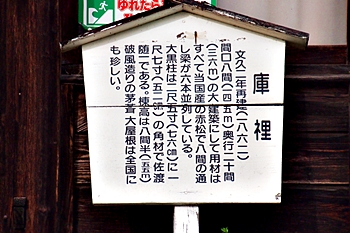 ゆれたら
庫裡
一、文久二年再建(一八六二)
間口八間(一四・五m)奥行二十間
(三六m)の大建築にして用材は
すべて当国産の赤松で八間の通
し梁が六本並列している。
大黒柱は二尺五寸(七六㎝)に一
尺七寸(五二㎝)の角材で佐渡
随一である。棟高は八間半(一五・五m)
破風造りの茅葺大屋根は全国に
も珍しい。